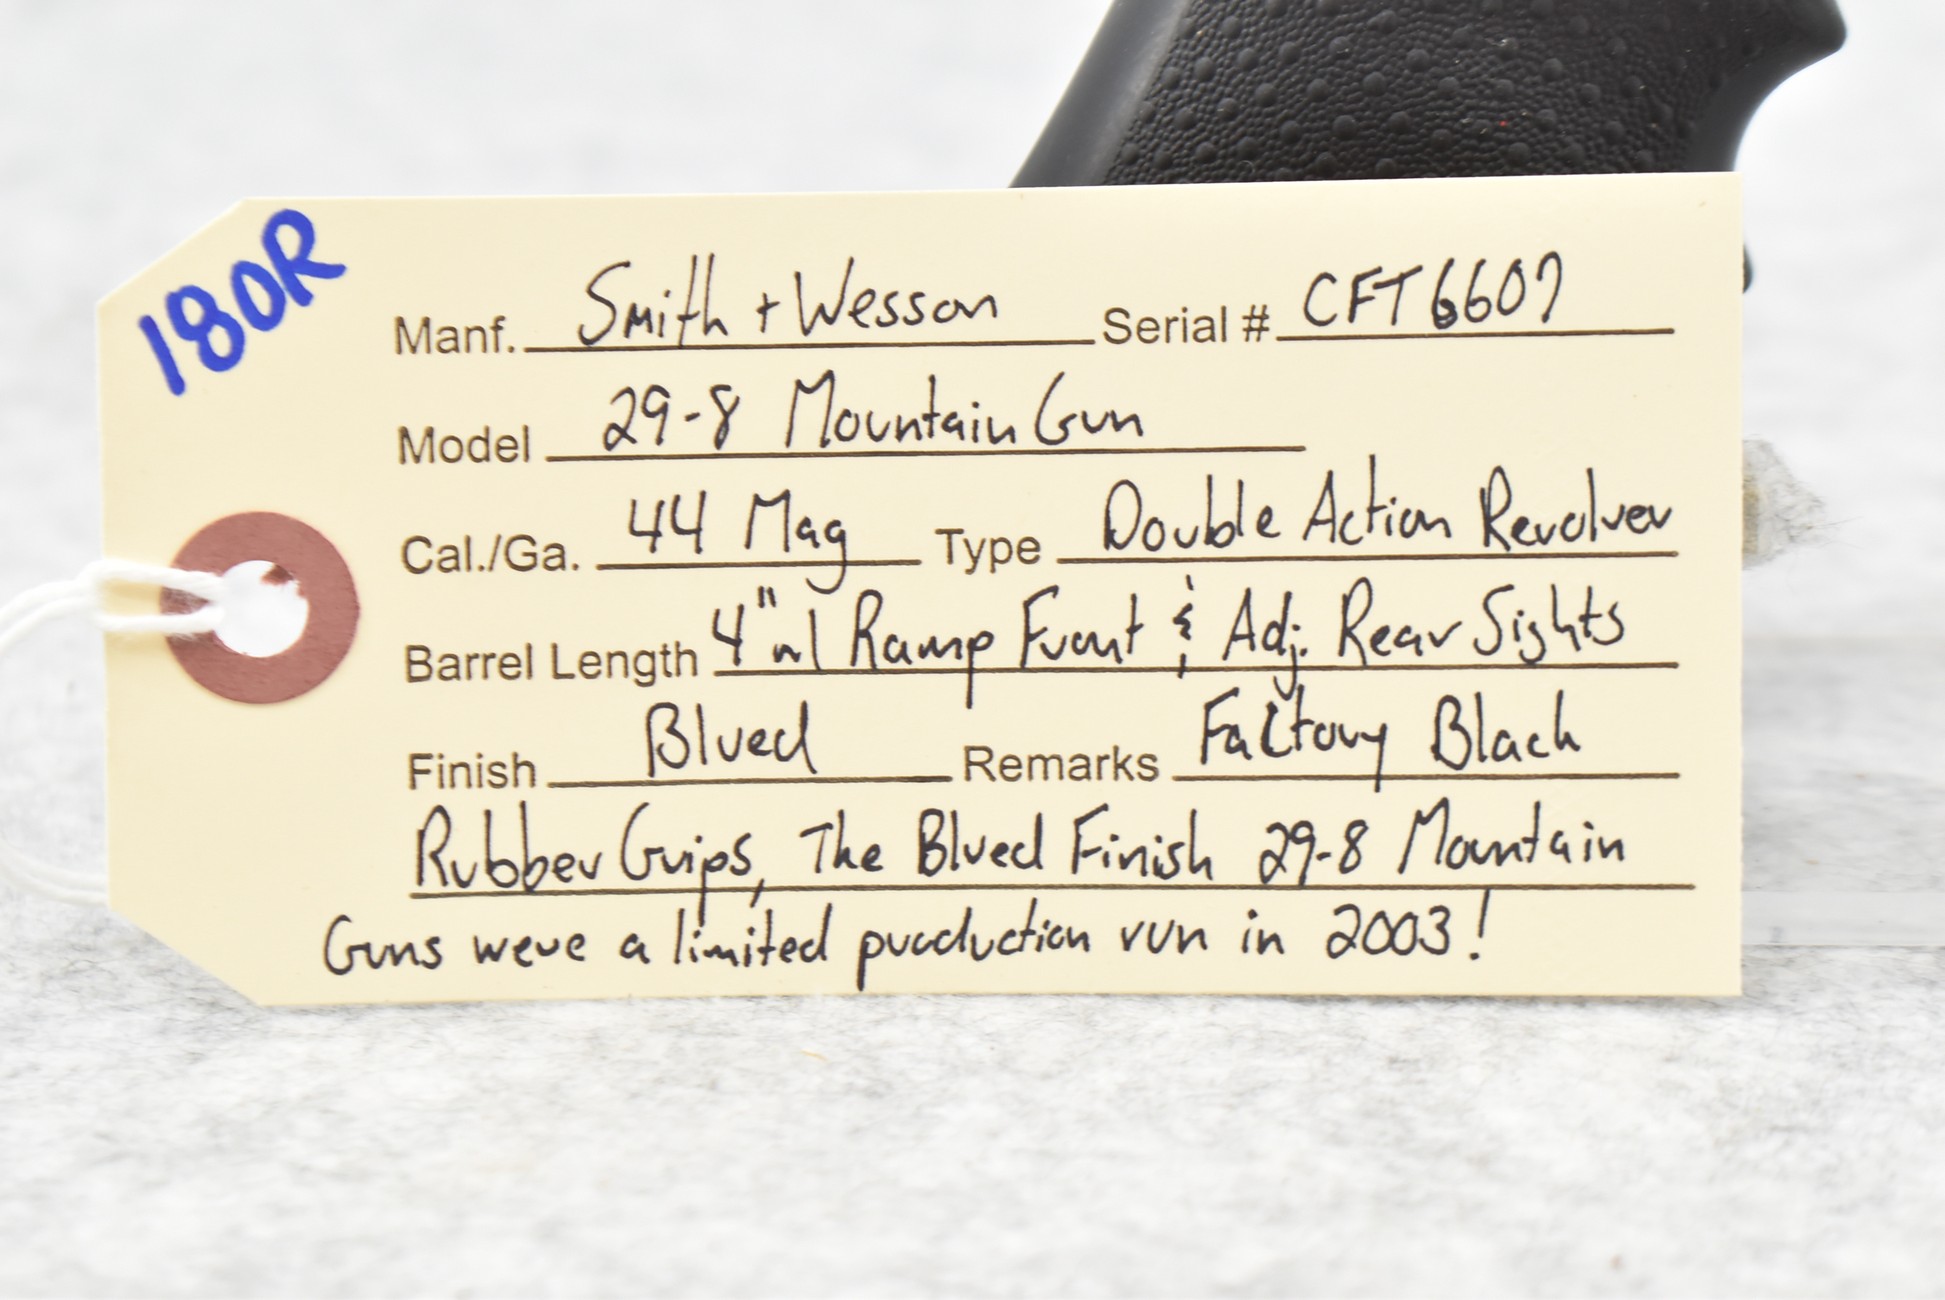 180R
Manf. Smith + Wesson Serial # CFT6607
Model 29-8 Mountain Gun
Cal./Ga. 44 Mag Type Double Action Revolver
Barrel Length 4" w/ Ramp Front & Adj. Rear Sights
Finish Blued Remarks Factory Black
Rubber Grips, The Blued Finish 29-8 Mountain
Guns were a limited production run in 2003!